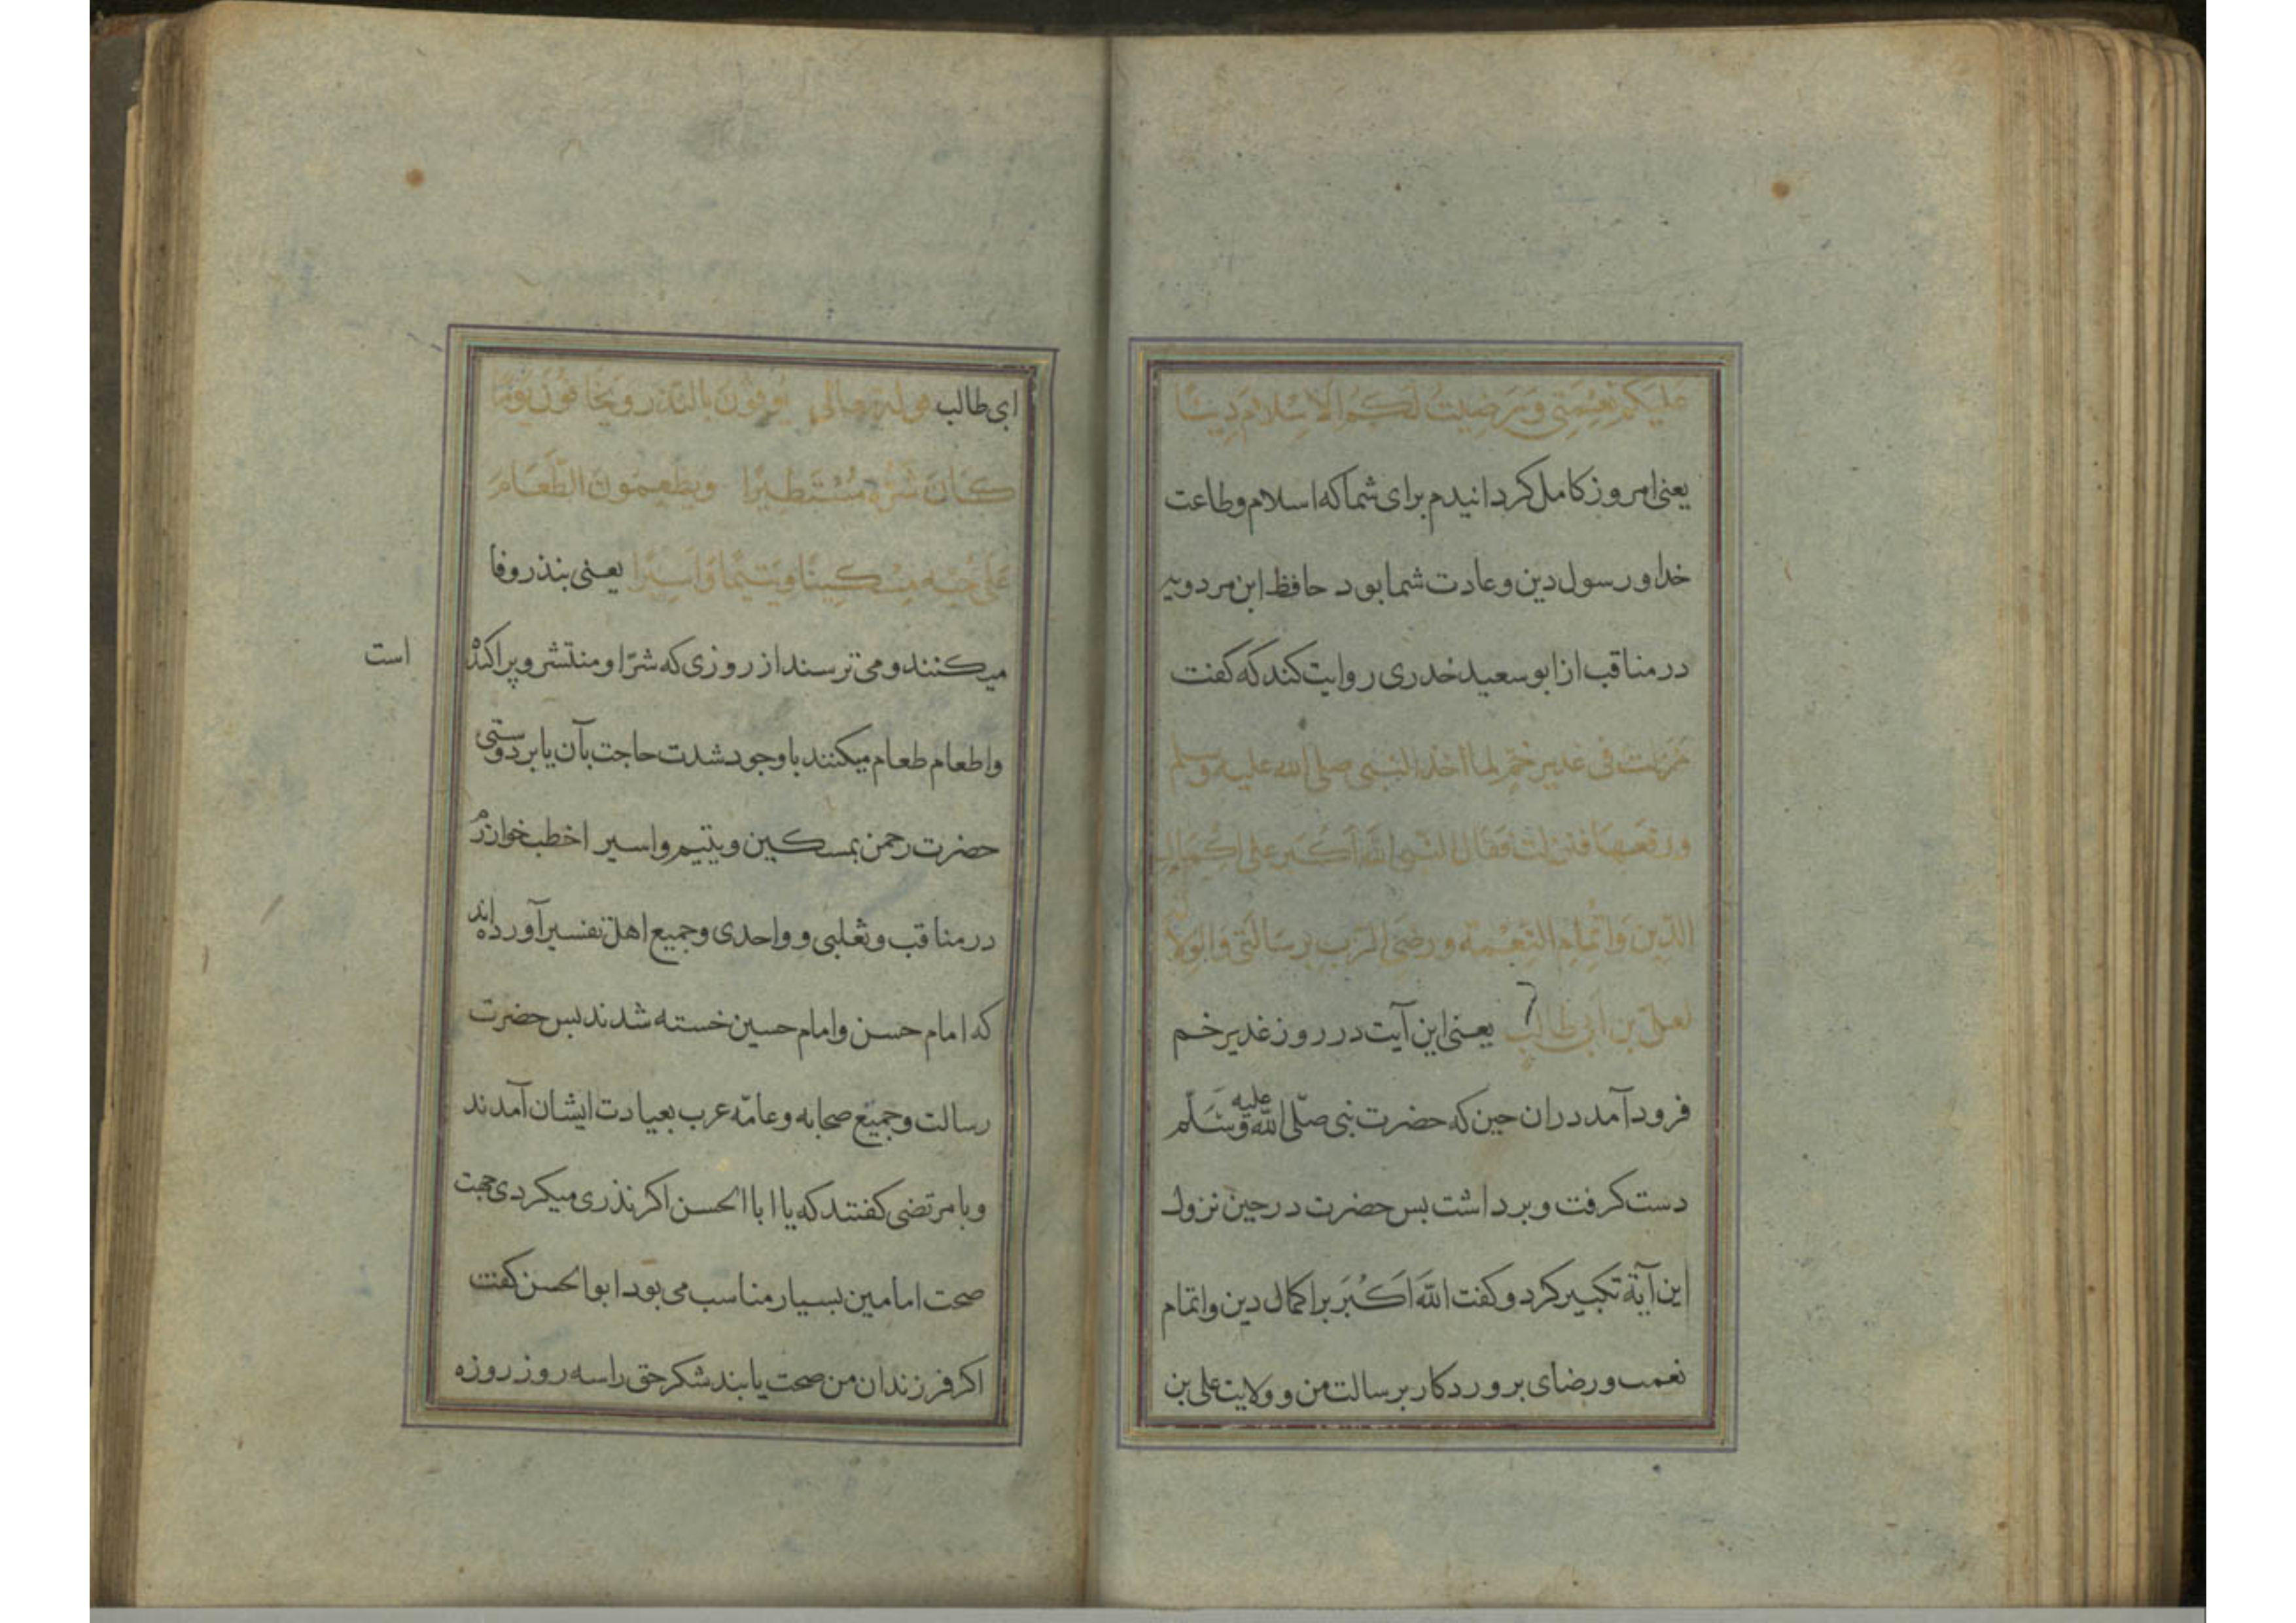 عليكم نعمتي ورضيت لكم الاسلام دينا
يعنی امروز کامل کردانیدم برای شما که اسلام وطاعت
خدا ورسول دین وعادت شما بود حافظ ابن مردویه
در مناقب از ابو سعید خدری روایت کند که کفت
نزلت في غدير خم لما اخذ النبي صلى الله عليه وسلم
ورفعها فنزلت فقال النبي الله أكبر على اكمال
الدين واتمام النعمة ورضى الرب برسالتي والولا
لعلي بن أبي طالب یعنی این آیت در روز غدیر خم
فرود آمد دران حین که حضرت نبی صلّی الله علیه وسَلّم
دست کرفت وبرداشت بس حضرت در حین نزول
این آیة تکبیر کرد وکفت الله اَکْبَر بر اکمال دین واتمام
نعمت ورضای بروردکار برسالت من وولایت علی بن
ابی طالب قوله تعالى يُوفُونَ بالنّذر ويخافون يومًا
كَانَ شَرُّهُ مُسْتَطيرًا ويطعمون الطَّعَامَ
عَلى حبه مِسْكِينًا ويَتيمًا وَاسيرًا یعنی بنذر وفا
میکنند ومی ترسند از روزی که شرّ او منتشر وپراکنده
است
واطعام طعام میکنند با وجود شدت حاجت بآن یا بر دوستی
حضرت رحمن بمسکین ویتیم واسیر اخطب خوارزم
در مناقب وثعلبی وواحدی وجمیع اهل تفسیر آورده اند
که امام حسن وامام حسین خسته شدند بس حضرت
رسالت وجمیع صحابه وعامّه عرب بعیادت ایشان آمدند
وبا مرتضی کفتند که یا ابا الحسن اکر نذری میکردی جهت
صحت امامین بسیار مناسب می بود ابو الحسن کفت
اکر فرزندان من صحت یابند شکر حق را سه روز روزه